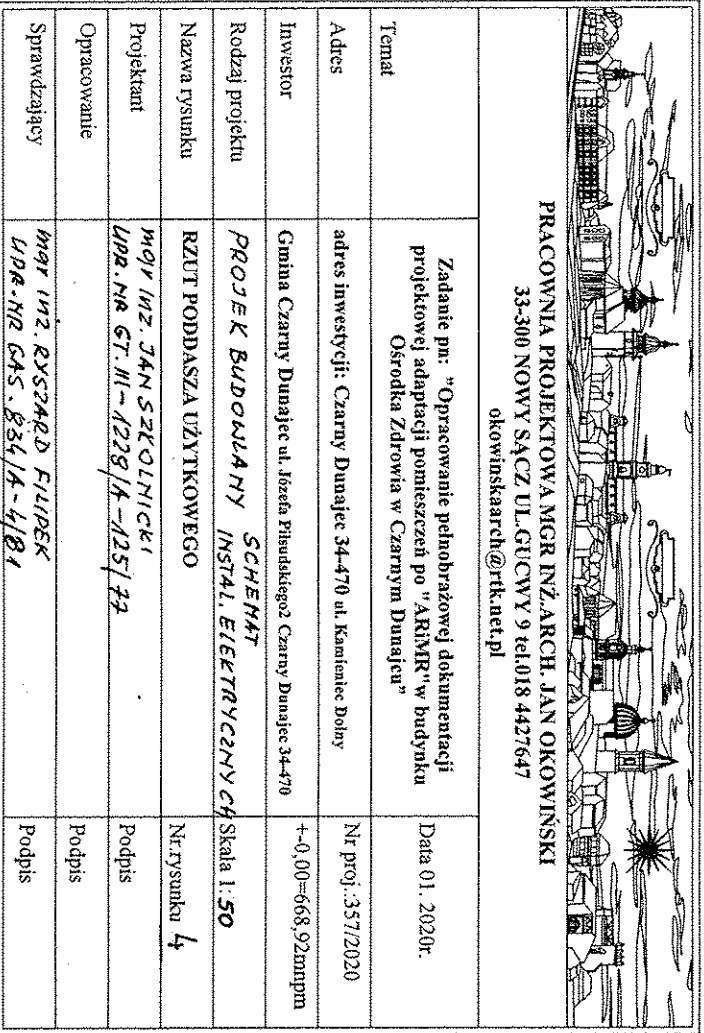 PRACOWNIA PROJEKTOWA MGR INŻ.ARCH. JAN OKOWIŃSKI
33-300 NOWY SĄCZ UL.GUCWY 9 tel.018 4427647
okowinskaarch@rtk.net.pl
Temat
Zadanie pn: "Opracowanie pełnobrażowej dokumentacji
projektowej adaptacji pomieszczeń po "ARiMR"w budynku
Ośrodka Zdrowia w Czarnym Dunajcu"
Data 01. 2020r.
Adres
adres inwestycji: Czarny Dunajec 34-470 ul. Kamieniec Dolny
Nr proj.:357/2020
Inwestor
Gmina Czarny Dunajec ul. Józefa Piłsudskiego2 Czarny Dunajec 34-470
+-0,00=668,92mnpm
Rodzaj projektu
PROJEK BUDOWLANY SCHEMAT
INSTAL. ELEKTRYCZNYCH
Skala 1:50
Nazwa rysunku
RZUT PODDASZA UŻYTKOWEGO
Nr.rysunku 4
Projektant
mgr inż. JAN SZKOLNICKI
UPR. NR GT. III-1228/A-125/77
Podpis
Opracowanie
Podpis
Sprawdzający
mgr inż. RYSZARD FILIPEK
UPR. NR GAS. 834/A-4/81
Podpis